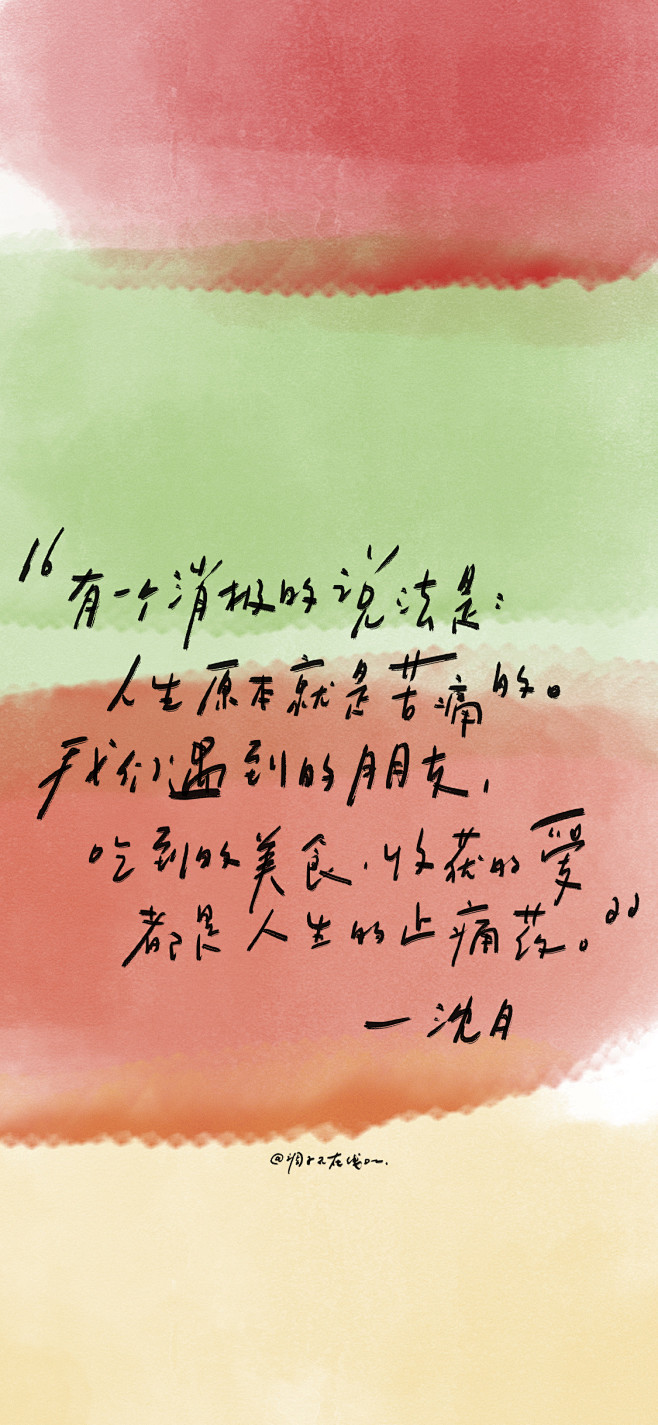 “有一个消极的说法是：
人生原本就是苦痛的。
我们遇到的朋友，
吃到的美食，收获的愛
都是人生的止痛药。”
—沈月